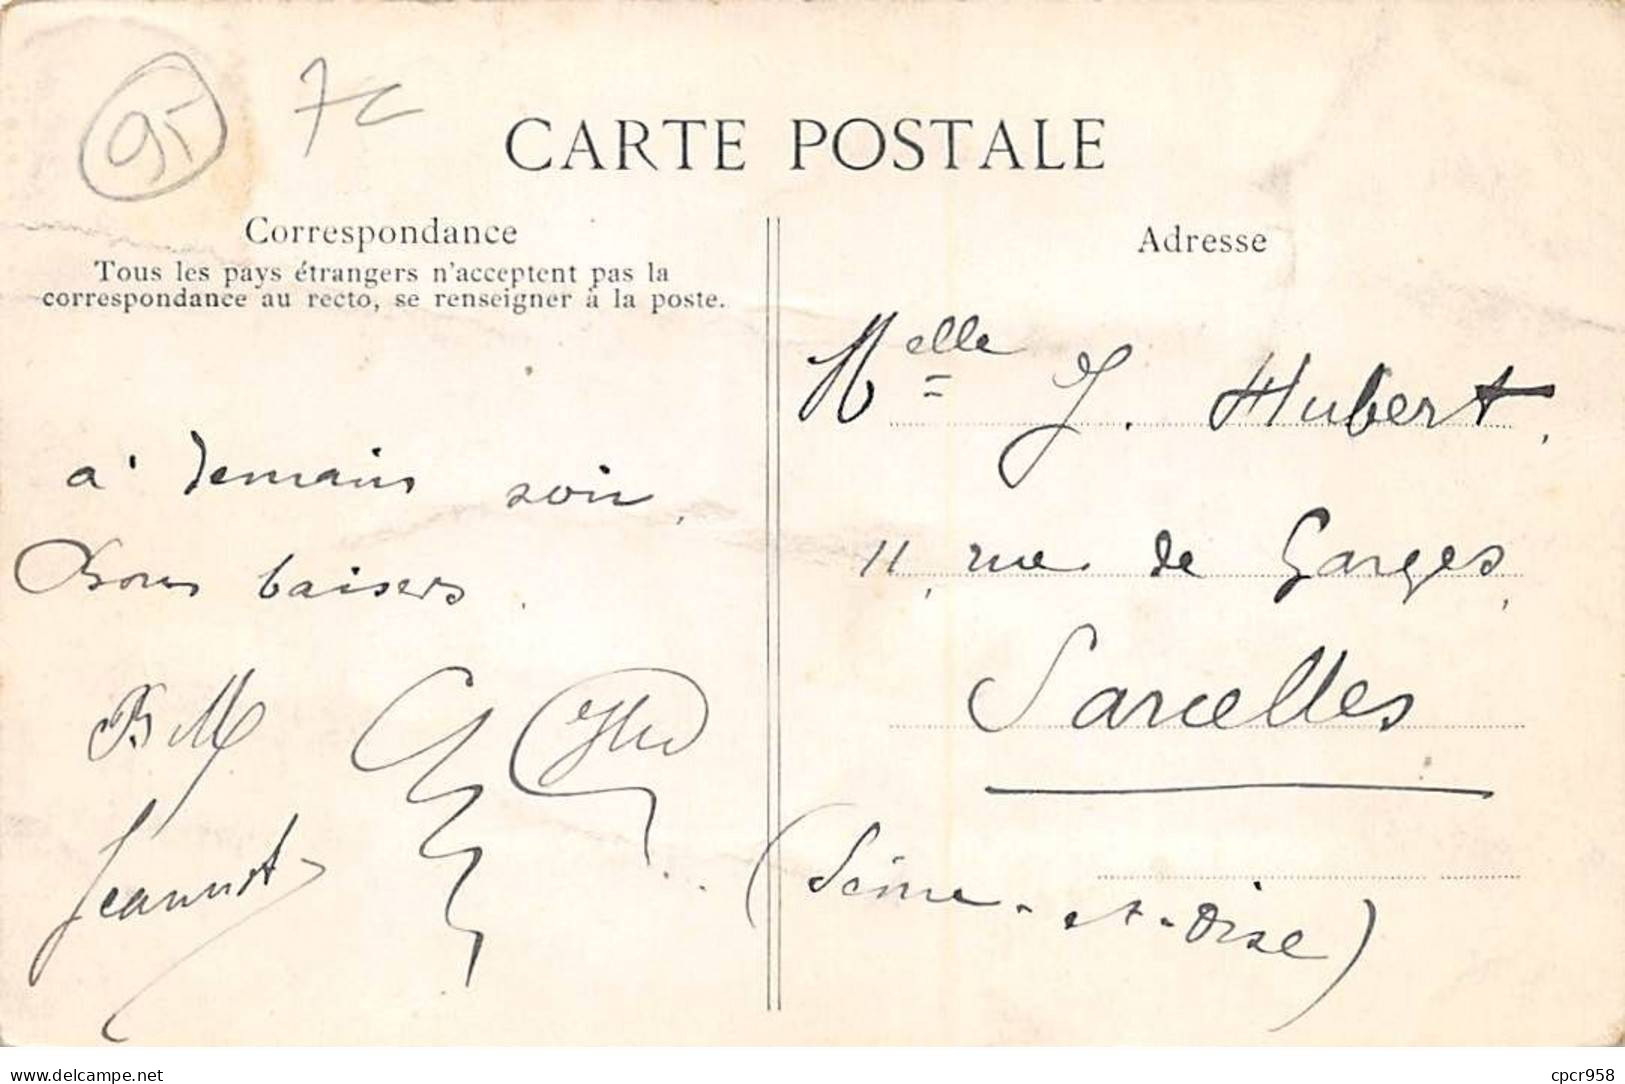 95 7c
CARTE POSTALE
Correspondance
Tous les pays étrangers n'acceptent pas la
correspondance au recto, se renseigner à la poste.
à demain soir,
Bons baisers.
BM
Jeannot
Adresse
Melle J. Hubert,
11, rue de Garges,
Sarcelles
(Seine-et-Oise)
www.delcampe.net
cpcr958